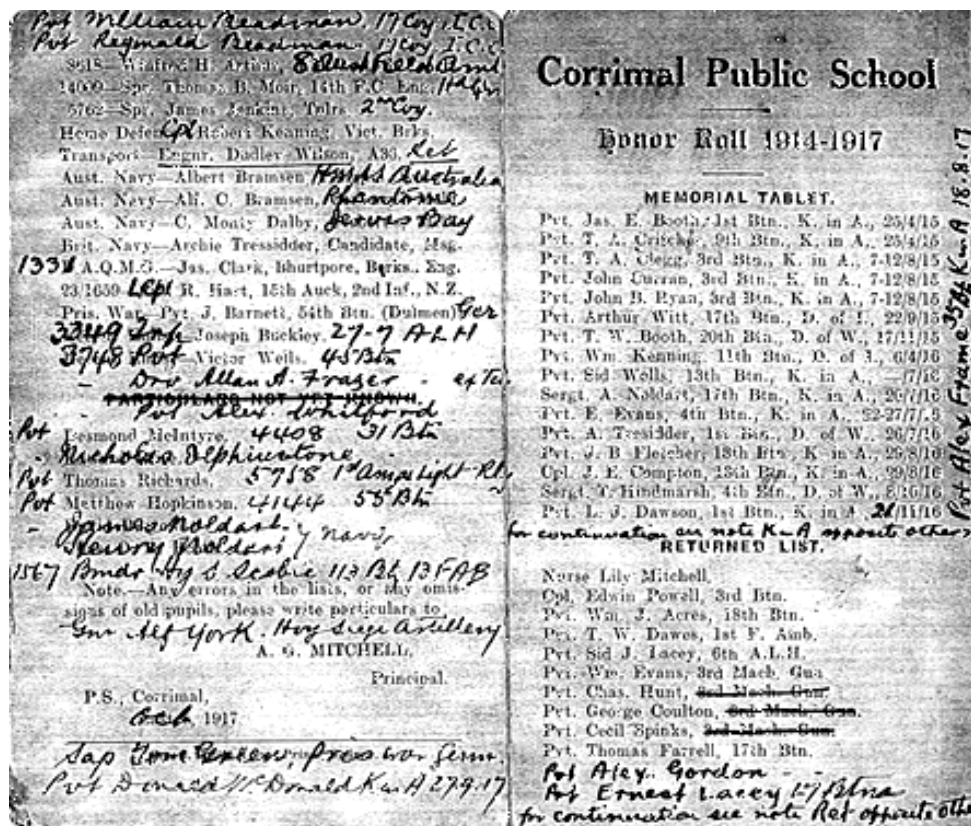 Pvt William Beadman, 17 Coy, I.C.C.
Pvt Reginald Beadman. 17 Coy I.C.C.
3618—Winifred H. Artis, 8 Aust Field Amb
14009—Spr. Thomas B. Moir, 14th F.C. Eng.
5762—Spr. James Jenkins, Tnlrs. 2nd Coy.
Home Defen Cpl Robert Kenning, Vict. Brks.
Transport—Engnr. Dudley Wilson, A36. Ret
Aust. Navy—Albert Bramsen, HMAS Australia
Aust. Navy—Alf. C. Bramsen, Phantome
Aust. Navy—C. Monty Dalby, Jervis Bay
Brit. Navy—Archie Tressidder, Candidate, Msg.
133 A.Q.M.G.—Jas. Clark, Bhurtpore, Berks., Eng.
23/1659 LCpl R. Hart, 15th Auck, 2nd Inf., N.Z.
Pris. War—Pvt. J. Barnett, 54th Btn. (Dulmen) Ger
3349 Joseph Buckley, 27-7 A L H
3748 Pvt Victor Wells. 45 Btn
- Drv Allan A. Frazer -
PARTICULARS NOT YET KNOWN.
Pvt Alex. Whitford
Pvt Desmond McIntyre, 4408 31 Btn
- Nicholas Elphinstone
Pvt Thomas Richards, 5758 1st Light Rly
Pvt Matthew Hopkinson, 4144 55 Btn
- James Noldart.
Henry Noldart } Navy
1567 Bmdr Hy S Scobie 113 Bty 13 FAB
Note.—Any errors in the lists, or any omis-
sions of old pupils, please write particulars to
Gnr Alf York. Hvy Siege Artillery
A. G. MITCHELL,
Principal.
P.S., Corrimal,
Oct, 1917.
Sap Tom Green, Pris war Germ.
Pvt Donald McDonald K in A 27.9.17
Corrimal Public School
Honor Roll 1914-1917
MEMORIAL TABLET.
Pvt. Jas. E. Booth, 1st Btn., K. in A., 25/4/15
Pvt. T. A. Critchp, 9th Btn., K. in A., 25/4/15
Pvt. T. A. Clegg, 3rd Btn., K. in A., 7-12/8/15
Pvt. John Curran, 3rd Btn., K. in A., 7-12/8/15
Pvt. John B. Ryan, 3rd Btn., K. in A., 7-12/8/15
Pvt. Arthur Witt, 17th Btn., D. of I., 22/9/15
Pvt. T. W. Booth, 20th Btn., D. of W., 17/11/15
Pvt. Wm. Kenning, 11th Btn., D. of I., 6/4/16
Pvt. Sid Wells, 13th Btn., K. in A., —/7/16
Sergt. A. Noldart, 17th Btn., K. in A., 26/7/16
Pvt. E. Evans, 4th Btn., K. in A., 22-27/7/16
Pvt. A. Tresidder, 1st Btn., D. of W., 26/7/16
Pvt. J. B. Fletcher, 13th Btn., K in A., 29/8/16
Cpl. J. E. Compton, 13th Btn., K. in A., 29/8/16
Sergt. T. Hindmarsh, 4th Btn., D. of W., 8/10/16
Pvt. L. J. Dawson, 1st Btn., K. in A., 21/11/16
for continuation see note K in A opposite other
RETURNED LIST.
Nurse Lily Mitchell.
Cpl. Edwin Powell, 3rd Btn.
Pvt. Wm. J. Acres, 18th Btn.
Pvt. T. W. Dawes, 1st F. Amb.
Pvt. Sid J. Lacey, 6th A.L.H.
Pvt. Wm. Evans, 3rd Mach. Gun
Pvt. Chas. Hunt, 3rd Mach. Gun.
Pvt. George Coulton, 3rd Mach. Gun.
Pvt. Cecil Spinks, 3rd Mach. Gun.
Pvt. Thomas Farrell, 17th Btn.
Pvt Alex. Gordon - -
Pvt Ernest Lacey 1/7 Btns
for continuation see note Ret opposite oth
Pvt Alex Frame K in A 18.8.17